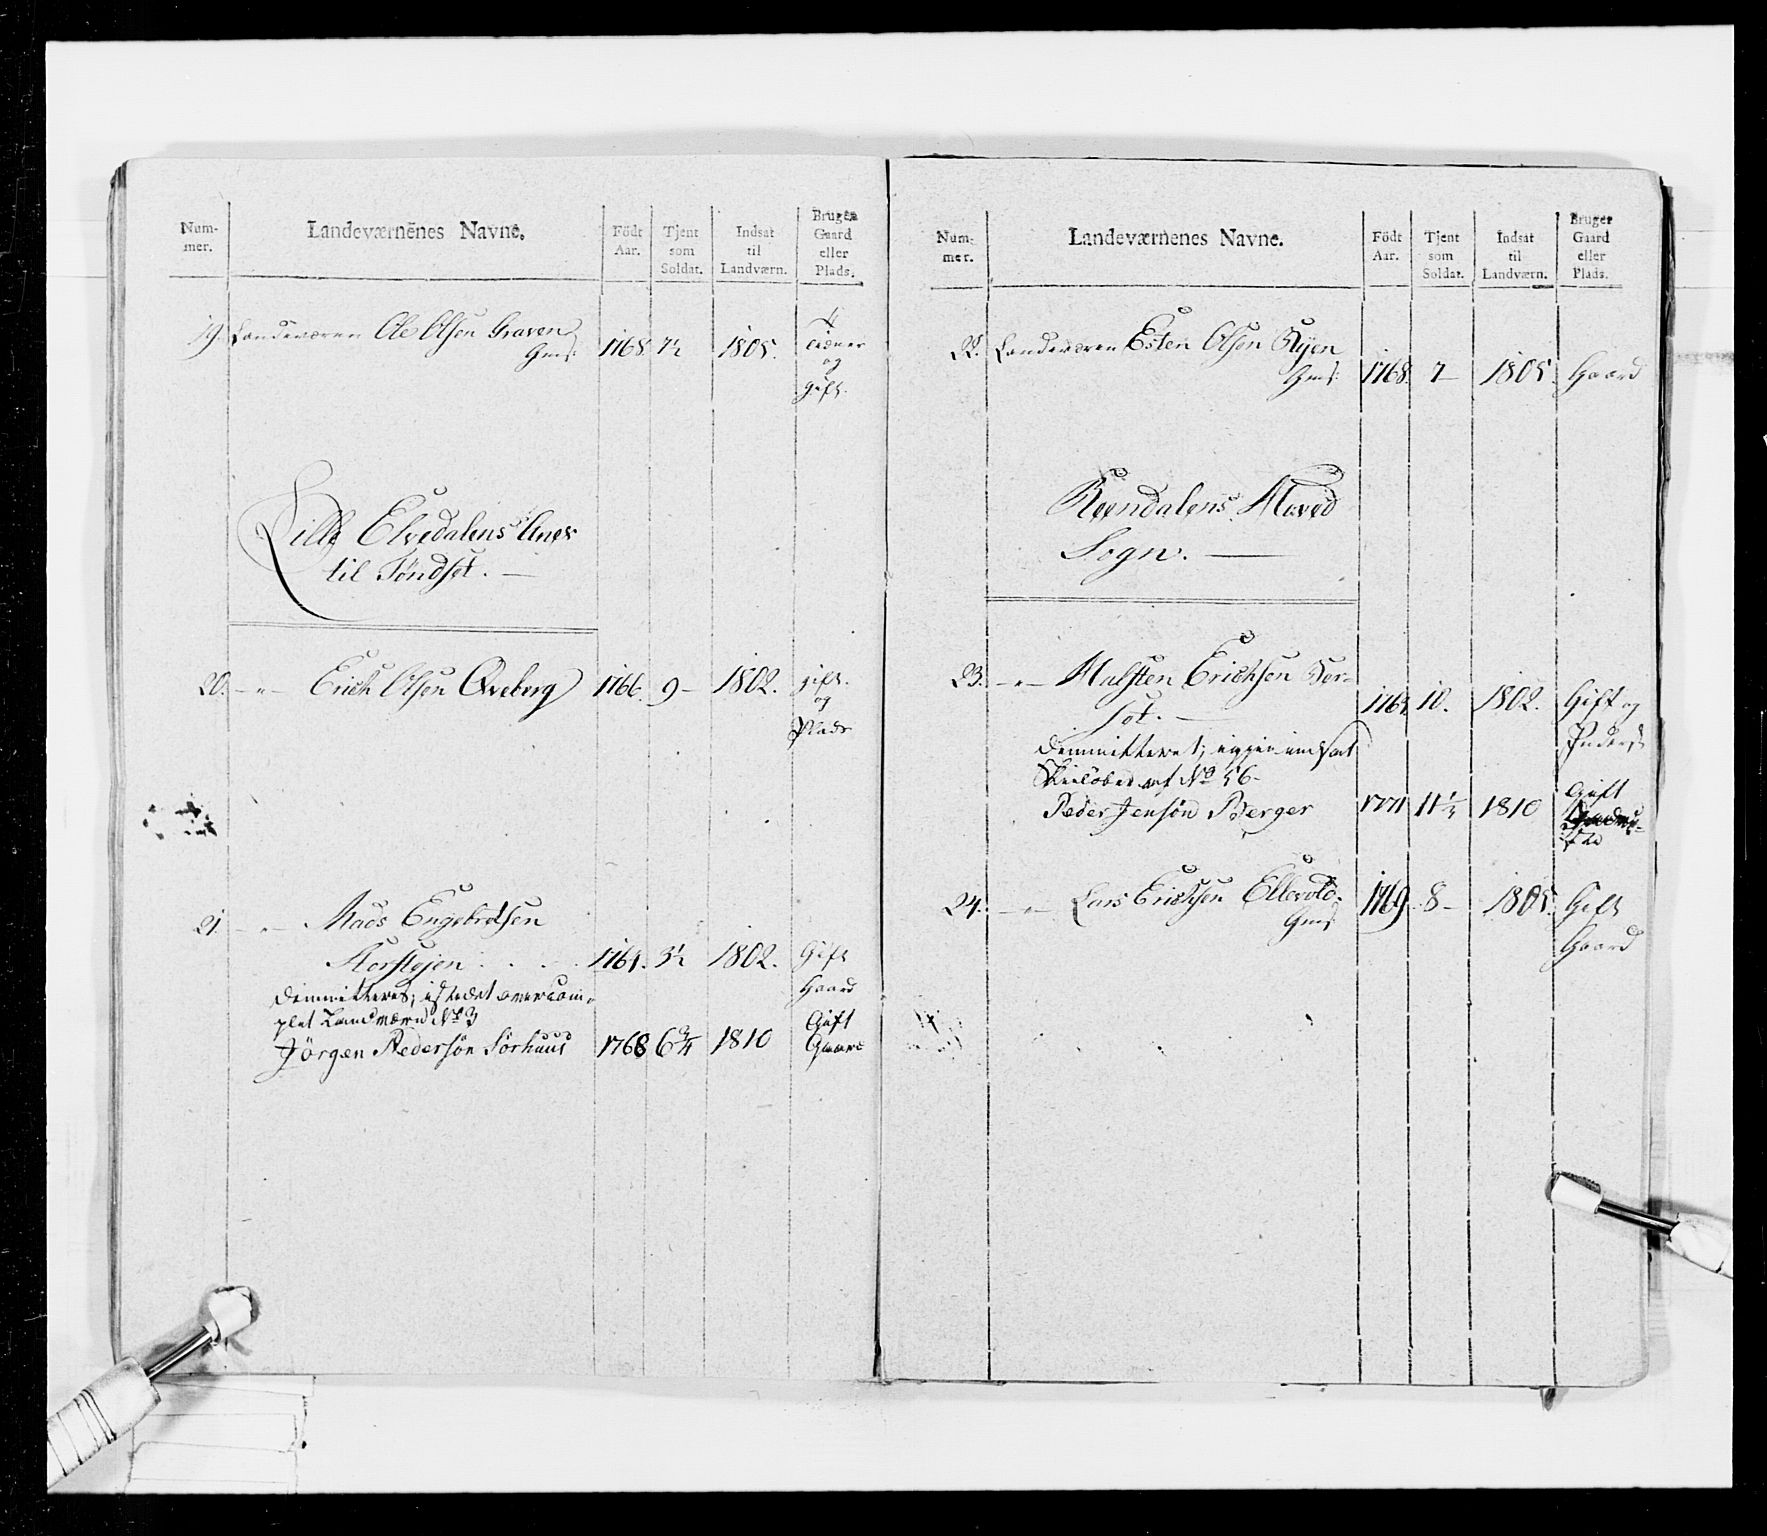 Num-
mer.
Landeværnenes Navne.
Födt
Aar.
Tjent
som
Soldat.
Indsat
til
Landværn.
Bruger
Gaard
eller
Plads.
19. Landeværn Ole Olsen Graven
Gms: 1768. 7½ 1805. Tiener
og
gift.
Lille Elvedalens Anex
til Tøndset. —
20. — " — Erich Olsen Qveberg 1766. 9 — 1802. gift.
og
Plads
21. — " — Mads Engebretsen
Storstejen . . . . 1764. 3½ 1802. Gift
Gaard
Dimmitteret, istedet overcom-
plet Landværn No 3
Jörgen Pedersøn Sörhuus 1768 6¾ 1810 Gift
Gaard
Num-
mer.
Landeværnenes Navne.
Födt
Aar.
Tjent
som
Soldat.
Indsat
til
Landværn.
Bruger
Gaard
eller
Plads.
22. Landeværn Esten Olsen Ryen
Gms: 1768. 7 — 1805. Gaard
Reendalens Hoved
Sogn. —
23. — " — Halsten Erichsen Ber-
set. — 1764 10. 1802. Gift og
Inderst
Dimmitteret, igjen indsat
Skielöber af No 56-
Peder Jensøn Berger 1771 11½ 1810 Gift
24. — " — Lars Erichsen Ellevold.
Gms 1769 8 — 1805. Gift
Gaard